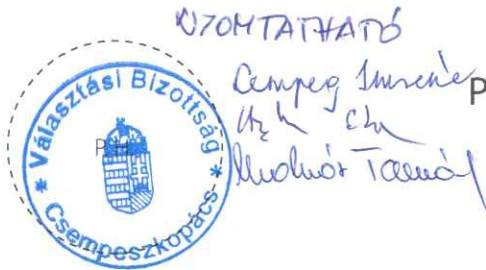 NYOMTATHATÓ
Cempeg Imréné
P
Molnár Tamás
P.H.
* Választási Bizottság *
Csempeszkopács